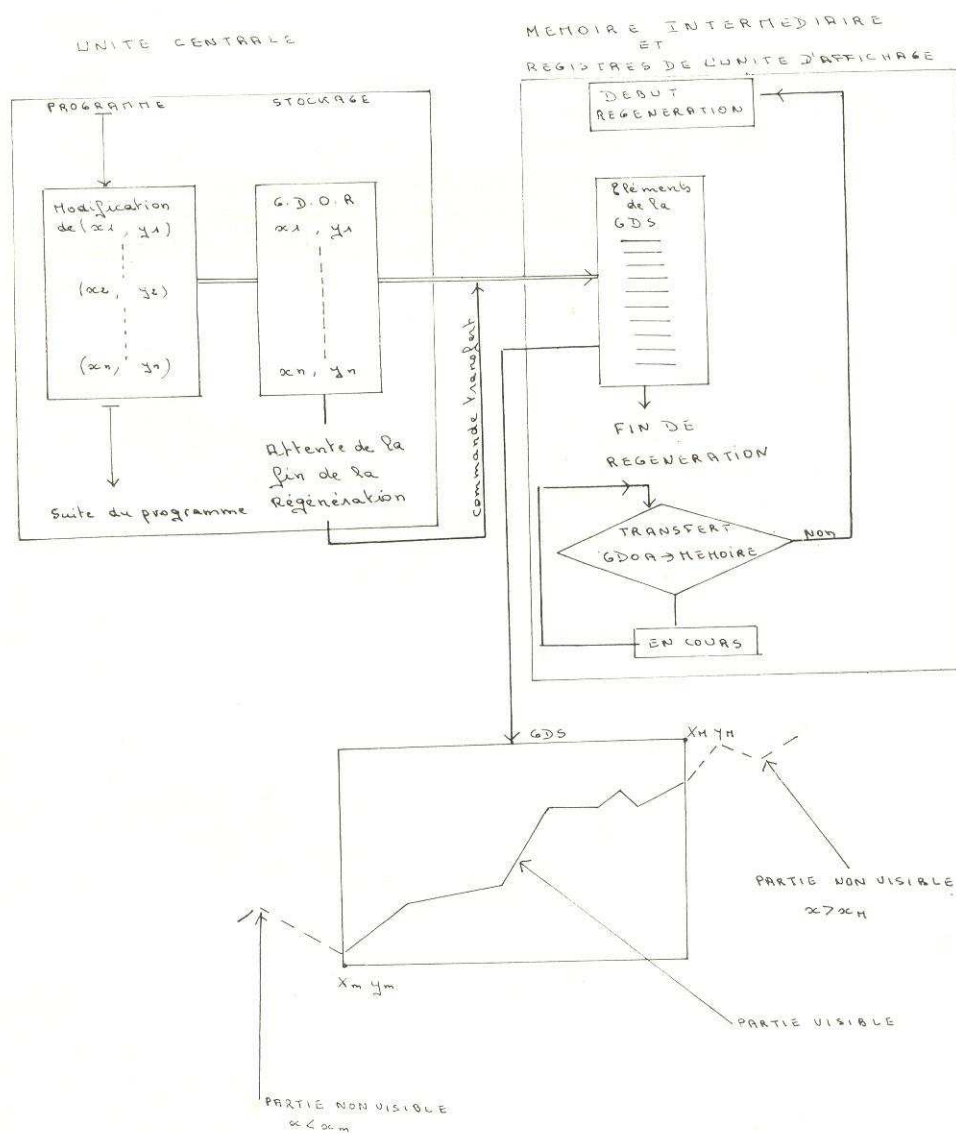 UNITE CENTRALE
MEMOIRE INTERMEDIAIRE
ET
REGISTRES DE L'UNITE D'AFFICHAGE
PROGRAMME
STOCKAGE
Modification
de (x1, y1)
(x2, y2)
(xn, yn)
Suite du programme
G.D.O.R
x1, y1
xn, yn
Attente de la
fin de la
Régénération
commande transfert
DEBUT
REGENERATION
Eléments
de la
GDS
FIN DE
REGENERATION
TRANSFERT
GDOA→MEMOIRE
NON
EN COURS
GDS
XM yM
PARTIE NON VISIBLE
x>xM
Xm ym
PARTIE VISIBLE
PARTIE NON VISIBLE
x<xm